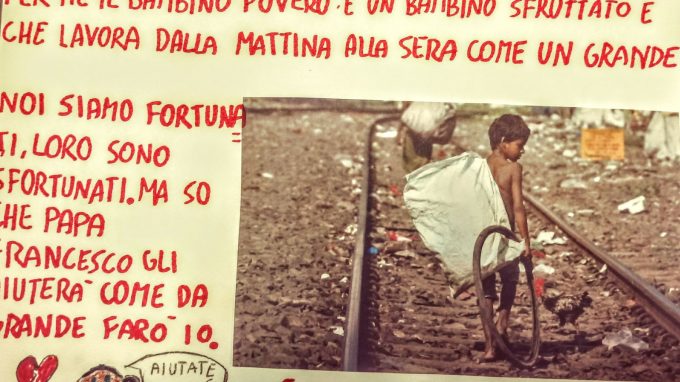 PER ME IL BAMBINO POVERO È UN BAMBINO SFRUTTATO E
CHE LAVORA DALLA MATTINA ALLA SERA COME UN GRANDE
NOI SIAMO FORTUNA
TI, LORO SONO
SFORTUNATI. MA SO
CHE PAPA
FRANCESCO GLI
AIUTERA' COME DA
GRANDE FARO' IO.
AIUTATE